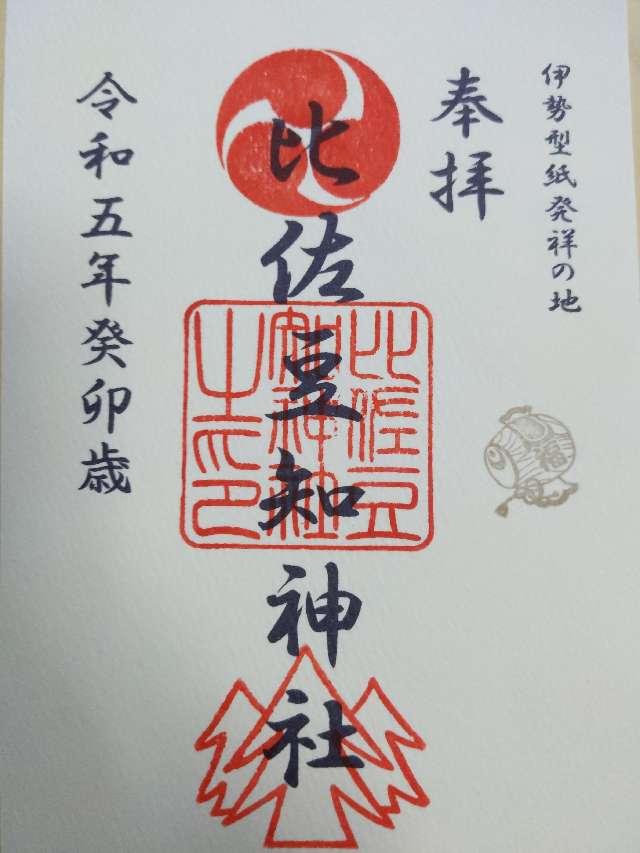 伊勢型紙発祥の地
奉拝
比佐豆知神社
比佐豆
知神社
之印
令和五年癸卯歳
福